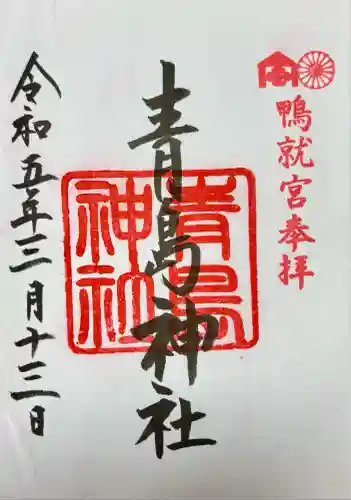 鴨就宮奉拝
青島神社
青島神社
令和五年三月十三日